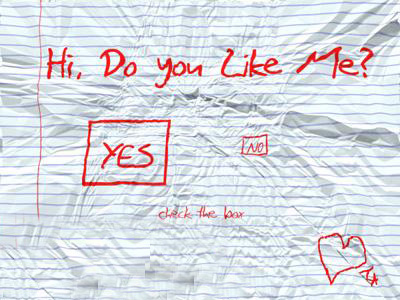 Hi, Do you Like Me?
YES NO
check the box